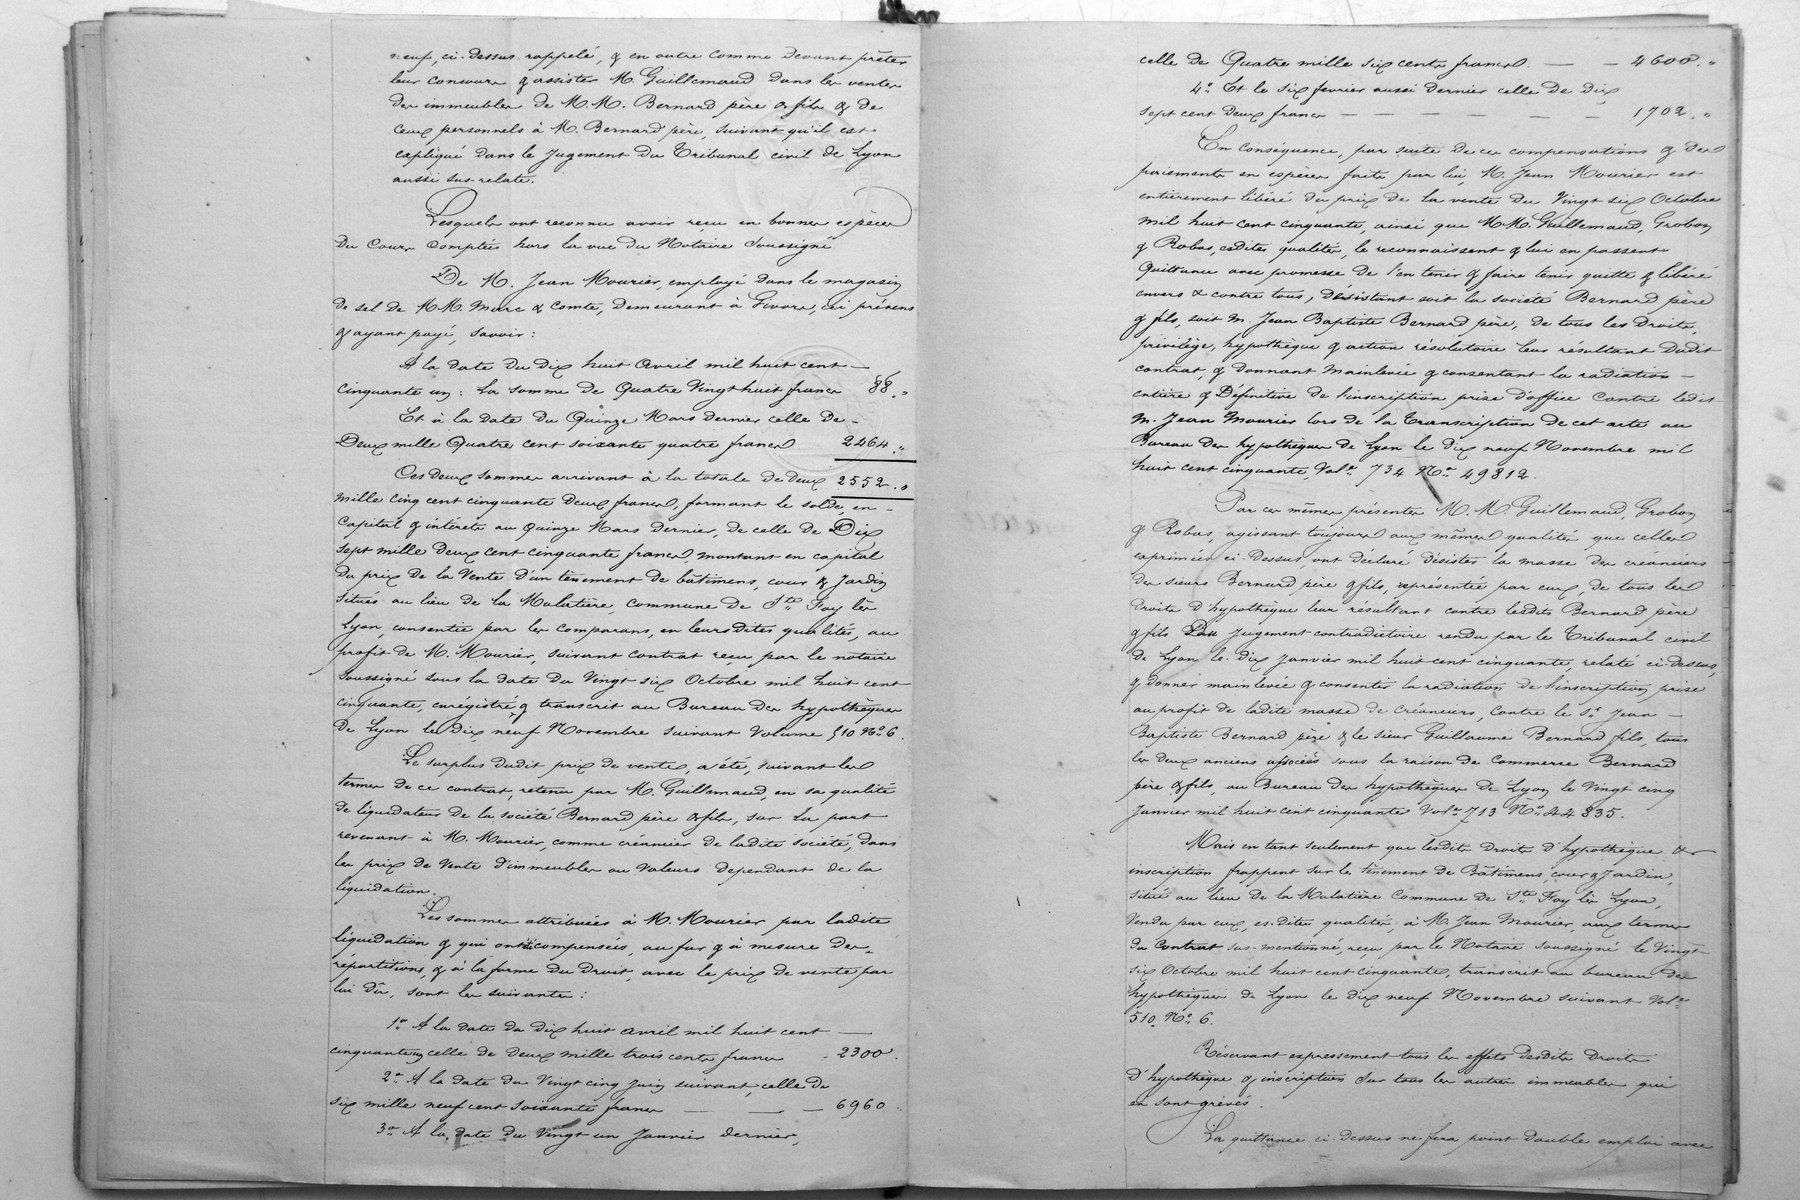 neuf, ci-dessus rappelé, & en outre comme devant prêter
leur concours & assister M. Guillemaud dans les ventes
des immeubles de M.M. Bernard père & fils & de
ceux personnels à M. Bernard père, suivant qu'il est
expliqué dans le Jugement du Tribunal civil de Lyon
aussi sus-relate.
Lesquels ont reconnu avoir reçu en bonnes espèces
du cours comptées hors la vue du Notaire soussigné
De M. Jean Mourier, employé dans le magasin
de sel de M.M. Marc & Comte, demeurant à Givors, ici présent
& ayant payé, savoir :
A la date du dix huit Avril mil huit cent —
cinquante un : La somme de Quatre Vingt huit francs 88. "
Et à la date du Quinze Mars dernier celle de -
Deux mille Quatre cent soixante quatre francs 2464. "
Ces deux sommes arrivant à la totale de deux 2552. "
mille cinq cent cinquante deux francs, formant le solde, en -
capital & intérêts au quinze Mars dernier, de celle de Dix
sept mille deux cent cinquante francs, montant en capital
du prix de la Vente d'un tènement de bâtimens, cour & Jardin
situés au lieu de la Mulatière, commune de Ste Foy lès
Lyon, consentie par les comparans, en leurs dites qualités, au
profit de M. Mourier, suivant contrat reçu par le notaire
soussigné sous la date du Vingt six Octobre mil huit cent
cinquante, enrégistré & transcrit au Bureau des hypothèques
de Lyon le dix neuf Novembre suivant Volume 510 No. 6.
Le surplus dudit prix de vente, a été, suivant les
termes de ce contrat, retenu par M. Guillemaud, en sa qualité
de liquidateur de la société Bernard père & fils, sur la part
revenant à M. Mourier, comme créancier de ladite société, dans
les prix de Vente d'immeubles ou Valeurs dependant de la
liquidation.
Les sommes attribuées à M. Mourier par ladite
liquidation & qui ont été compensées, au fur & à mesure des
répartitions, & à la forme du Droit, avec le prix de vente par
lui dû, sont les suivantes :
1o. A la date du dix huit avril mil huit cent —
cinquante un celle de deux mille trois cents francs - 2300.
2o. A la date du Vingt cinq Juin suivant, celle de
six mille neuf cent soixante francs — — — 6960.
3o. A la date du Vingt un Janvier dernier,
celle de Quatre mille six cents francs. — — 4600. "
4o. Et le six fevrier aussi dernier celle de Dix
sept cent deux francs — — — — — — 1702. "
En conséquence, par suite de ces compensations & des
paiements en espèces faits par lui, M. Jean Mourier est
entièrement libéré du prix de la vente du Vingt six Octobre
mil huit cent cinquante, ainsi que M.M. Guillemaud, Grobon
& Robas, esdites qualités, le reconnaissent & lui en passent
Quittance avec promesse de l'en tenir & faire tenir quitte & libéré
envers & contre tous, désistant soit la société Bernard père
& fils, soit M. Jean Baptiste Bernard père, de tous les Droits,
privilège, hypothèque & action résolutoire leur résultant dudit
contrat, & donnant mainlevée & consentant la radiation —
entière & Définitive de l'inscription prise d'office contre ledit
M. Jean Mourier lors de la transcription de cet acte au
Bureau des hypothèques de Lyon le dix neuf Novembre mil
huit cent cinquante, Vole. 734 No. 49812.
Par ces mêmes présentes M.M. Guillemaud, Grobon
& Robas, agissant toujours aux mêmes qualités que celles
exprimées ci-dessus, ont déclaré désister la masse des créanciers
des sieurs Bernard père & fils, représentée par eux, de tous les
Droits d'hypothèque leur résultant contre lesdits Bernard père
& fils Du Jugement contradictoire rendu par le Tribunal civil
de Lyon le dix Janvier mil huit cent cinquante, relaté ci-dessus,
& donner mainlevée & consentir la radiation de l'inscription prise
au profit de ladite masse de créanciers, contre le Sr. Jean —
Baptiste Bernard père & le sieur Guillaume Bernard fils, tous
les deux anciens associés sous la raison de Commerce Bernard
père & fils, au Bureau des hypothèques de Lyon le Vingt cinq
Janvier mil huit cent cinquante Vole. 713 No. 44835.
Mais en tant seulement que lesdits Droits d'hypothèque &
inscription frappent sur le tènement de Bâtimens, cour & Jardin,
situé au lieu de la Mulatière Commune de Ste. Foy lès Lyon,
Vendu par eux, es-dites qualités, à M. Jean Mourier, aux termes
du contrat sus-mentionné, reçu par le Notaire soussigné le Vingt
six Octobre mil huit cent cinquante, transcrit au bureau des
hypothèques de Lyon le dix neuf Novembre suivant Vole
510. No. 6.
Réservant expressement tous les effets desdits Droits
d'hypothèque & inscription sur tous les autres immeubles qui
en sont grevés.
La quittance ci-dessus ne fera point double emploi avec